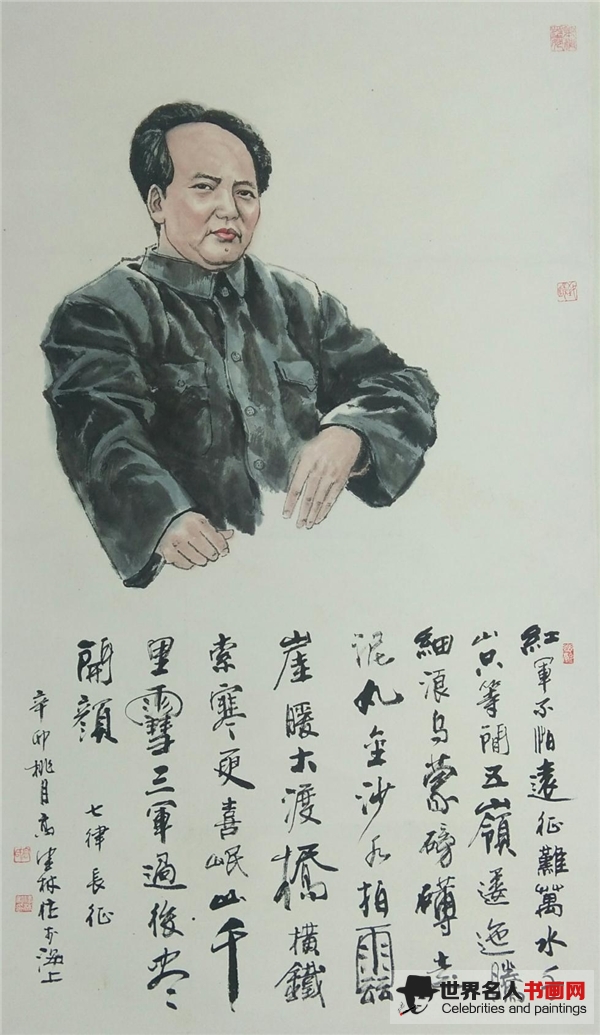 紅軍不怕遠征難萬水千
山只等閒五嶺逶迤騰
細浪烏蒙磅礴走
泥丸金沙水拍雲
崖暖大渡橋橫鐵
索寒更喜岷山千
里雪三軍過後盡
開顏
七律長征
辛卯桃月高林於海上
世界名人书画网
Celebrities and paintings